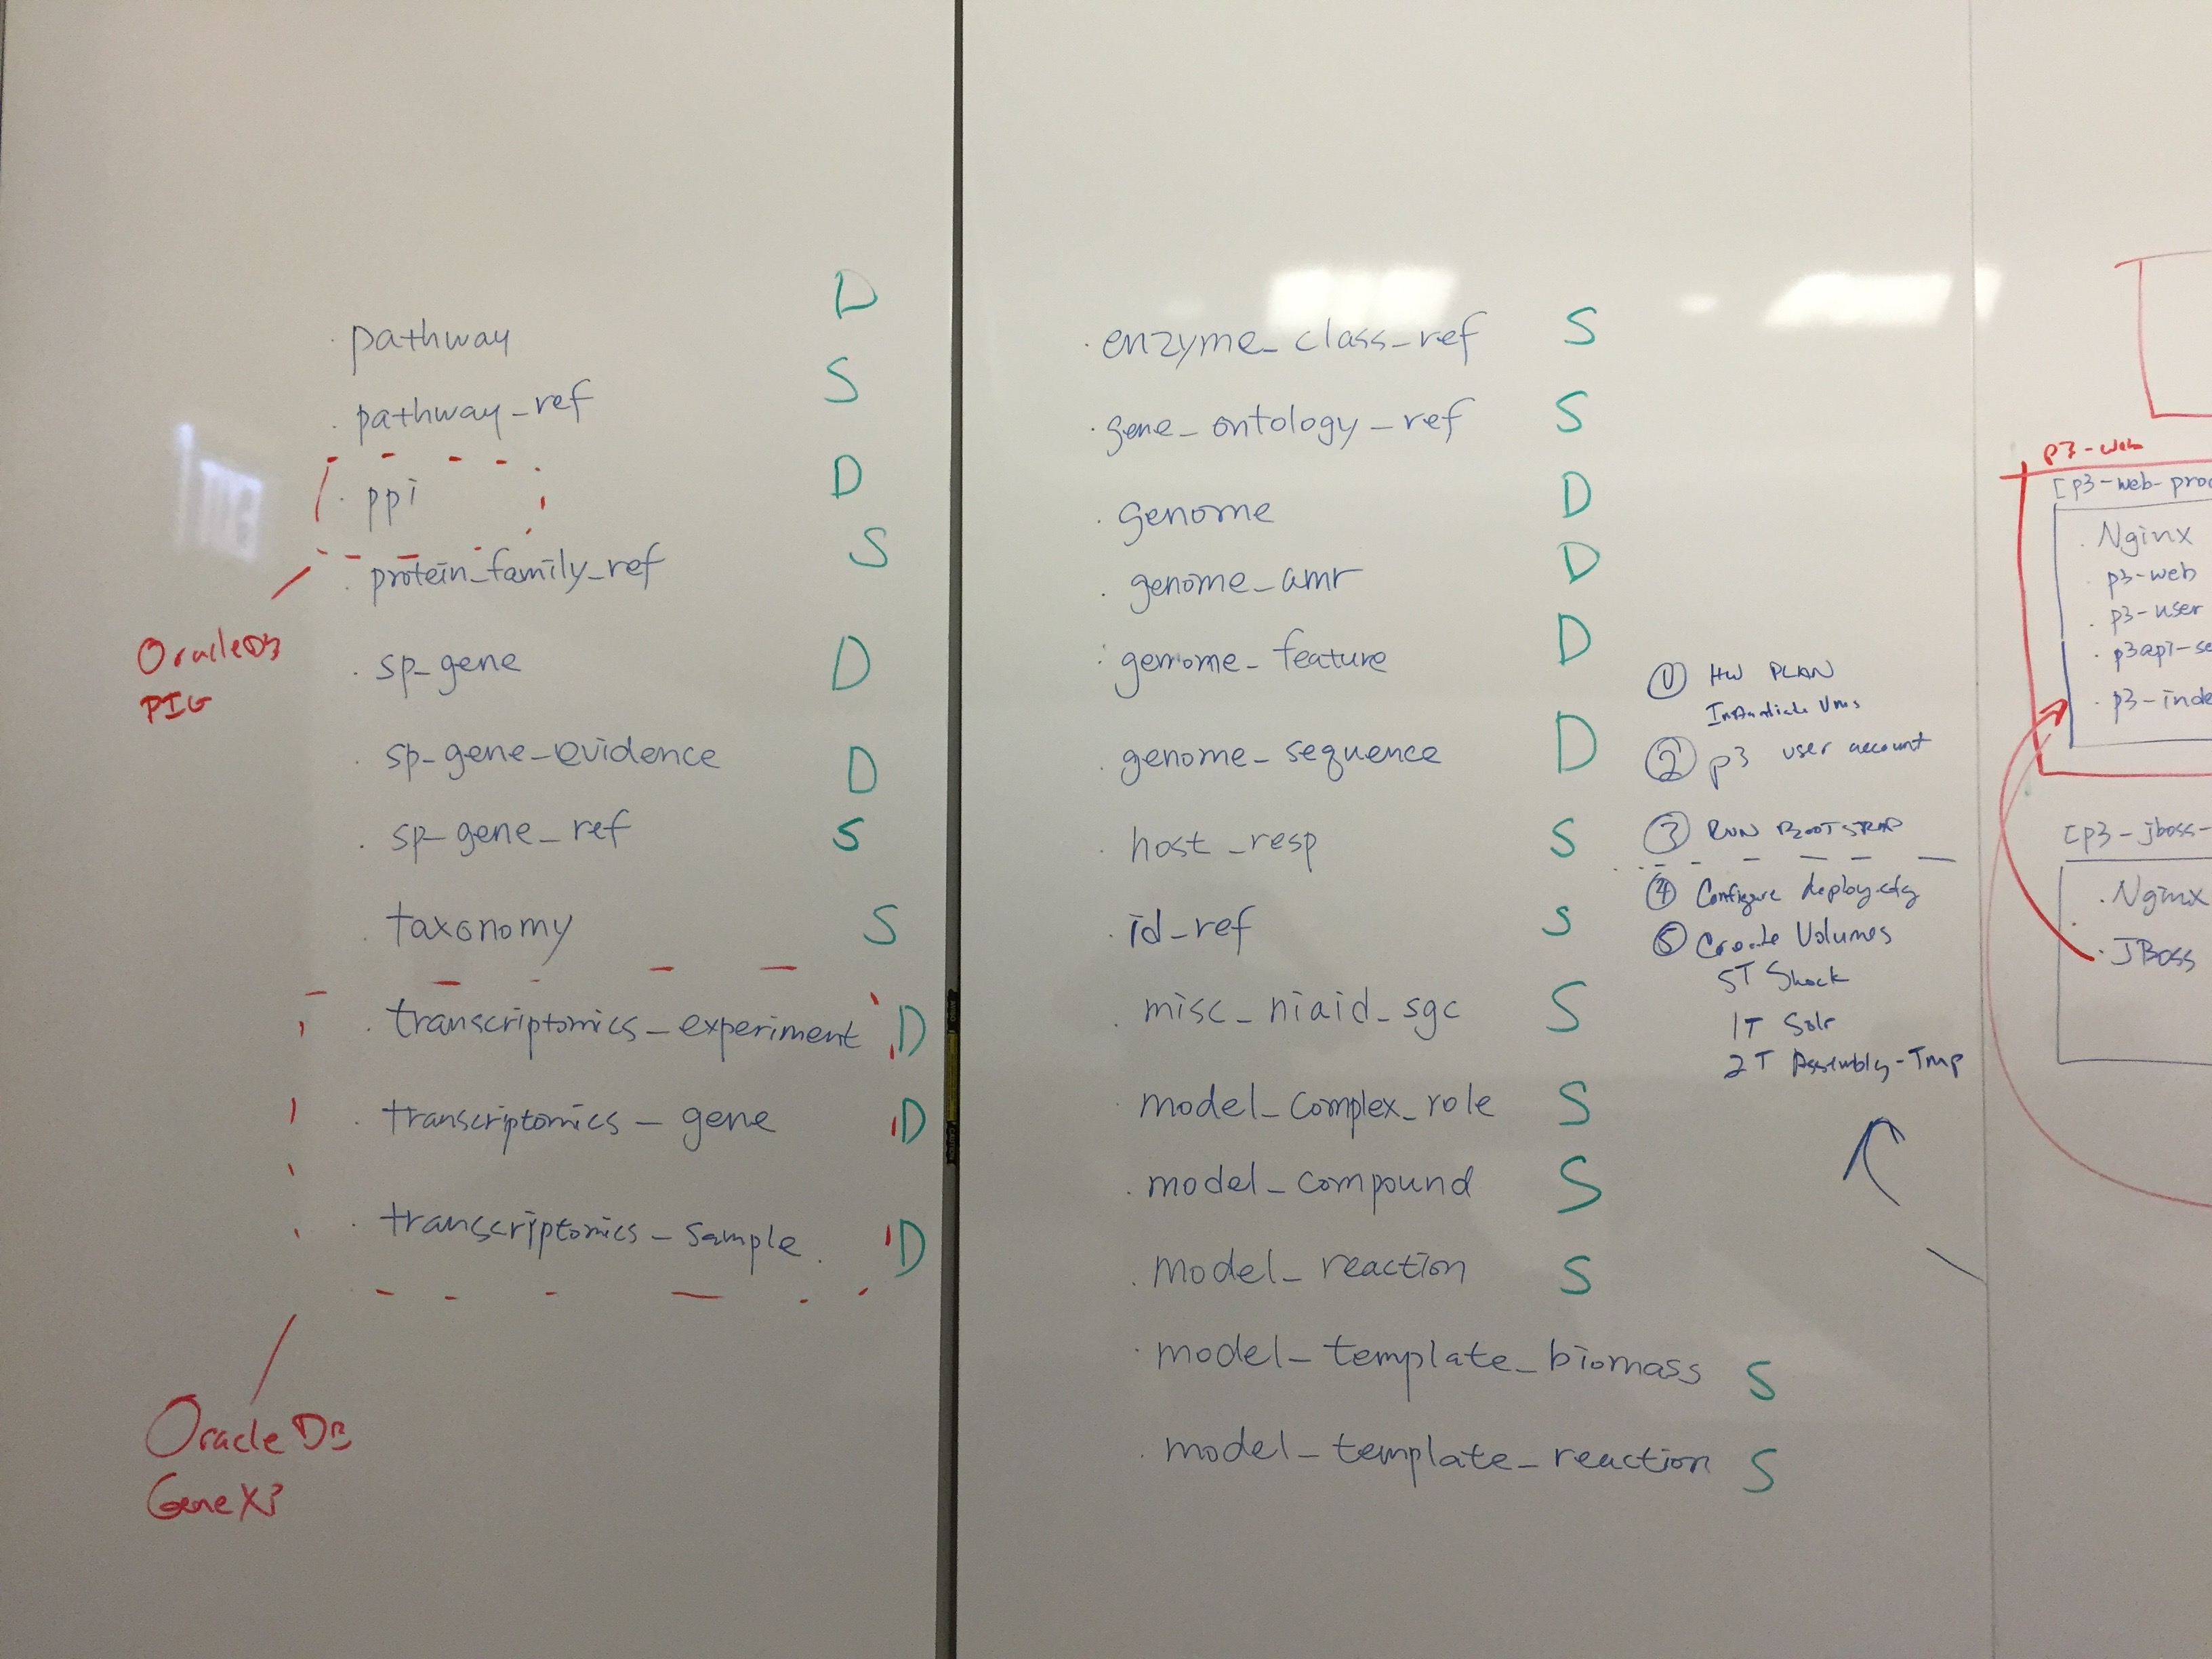 . pathway D
. pathway_ref S
. ppi D
. protein_family_ref S
OracleDB
PIG
. sp_gene D
. sp_gene_evidence D
. sp_gene_ref S
. taxonomy S
. transcriptomics_experiment D
. transcriptomics_gene D
. transcriptomics_sample. D
OracleDB
. enzyme_class_ref S
. gene_ontology_ref S
. genome D
. genome_amr D
. genome_feature D
. genome_sequence D
. host_resp S
. id_ref S
. misc_niaid_sgc S
. model_complex_role S
. model_compound S
. model_reaction S
. model_template_biomass S
. model_template_reaction S
① HW PLAN
Vms
② p3 user account
③ RUN BOOTSTRAP
④ Configure deploy.cfg
⑤ Create Volumes
5T Shock
1T Solr
2T Assembly-Tmp
p3-web
[p3-web-prod
. Nginx
. p3-web
. p3-user
. p3api-se
. p3-inde
[p3-jboss-
. Nginx
. JBoss